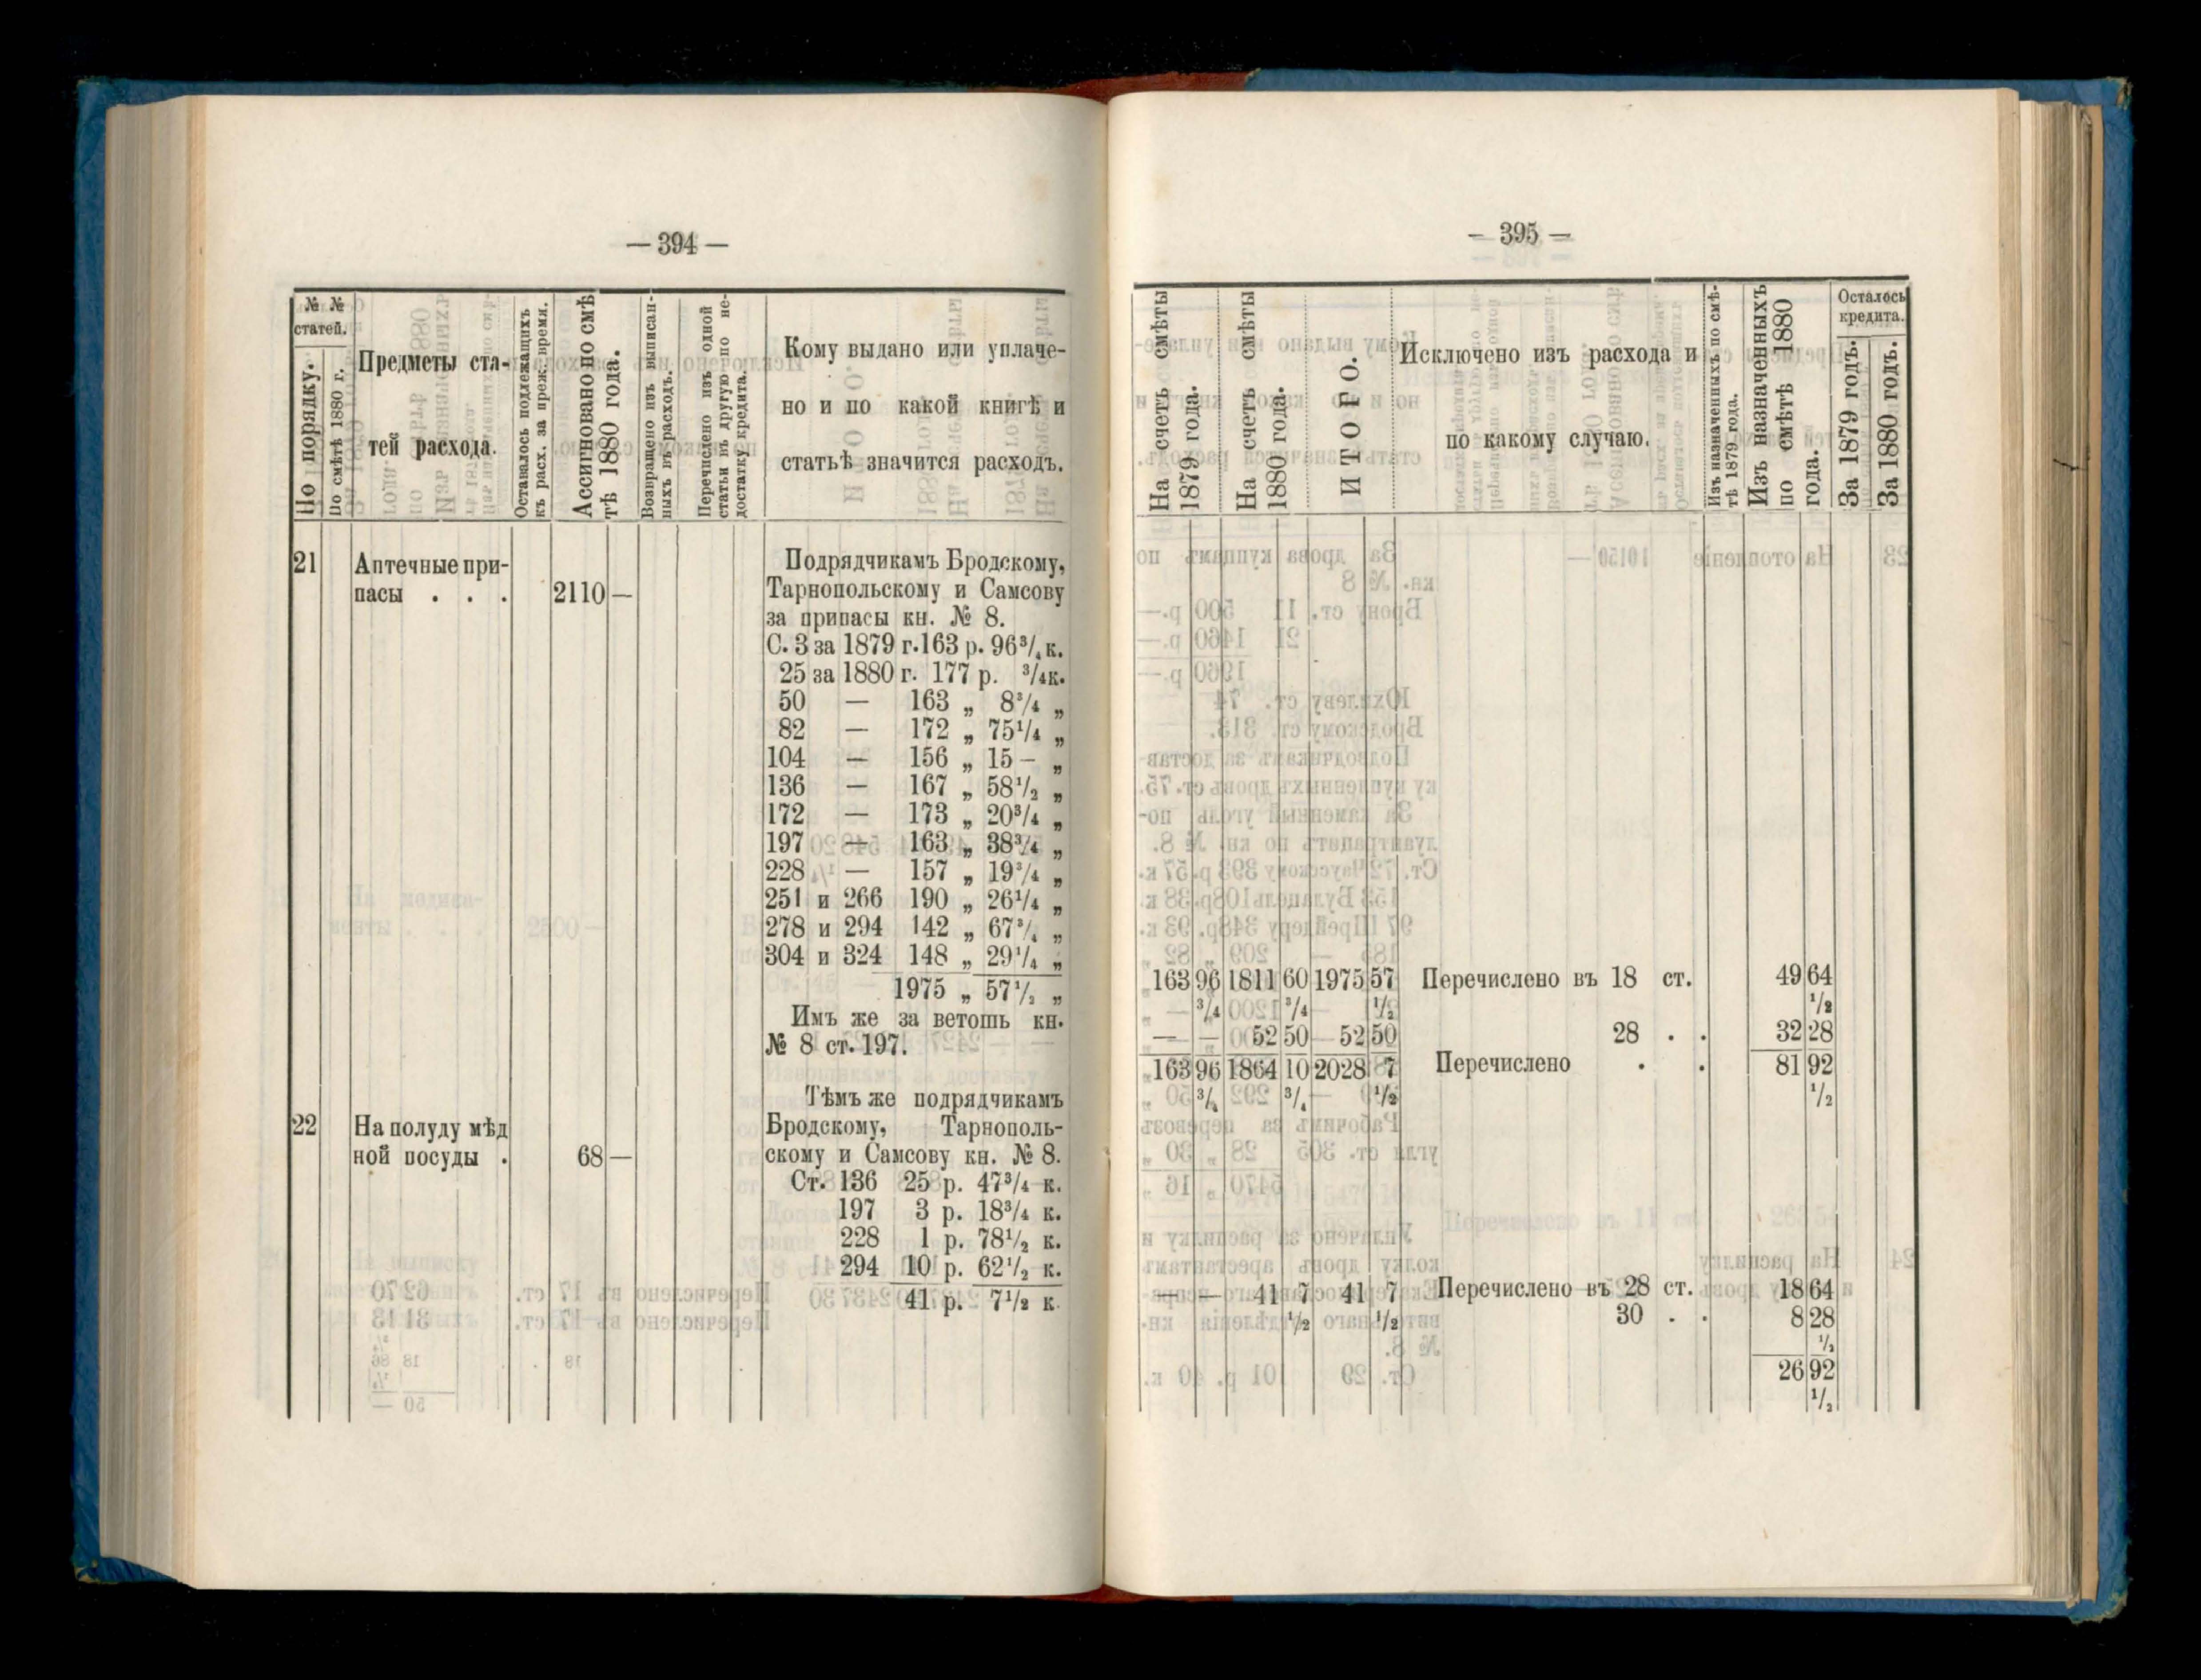 — 394 —
№ №
статей.
По порядку.
По смѣтѣ 1880 г.
Предметы ста-
тей расхода.
Оставалось подлежащихъ
къ расх. за преж. время.
Ассигновано по смѣ
тѣ 1880 года.
Возвращено изъ выписан-
ныхъ въ расходъ.
Перечислено изъ одной
статьи въ другую по не-
достатку кредита.
Кому выдано или уплаче-
но и по какой книгѣ и
статьѣ значится расходъ.
21 Аптечные при-
пасы . . . 2110 —
Подрядчикамъ Бродскому,
Тарнопольскому и Самсову
за припасы кн. № 8.
С. 3 за 1879 г. 163 р. 96³/₄ к.
25 за 1880 г. 177 р. ³/₄ к.
50 — 163 „ 8³/₄ „
82 — 172 „ 75¹/₄ „
104 — 156 „ 15 — „
136 — 167 „ 58¹/₂ „
172 — 173 „ 20³/₄ „
197 — 163 „ 38³/₄ „
228 — 157 „ 19³/₄ „
251 и 266 190 „ 26¹/₄ „
278 и 294 142 „ 67³/₄ „
304 и 324 148 „ 29¹/₄ „
1975 „ 57¹/₂ „
Имъ же за ветошь кн.
№ 8 ст. 197.
22 На полуду мѣд
ной посуды . 68 —
Тѣмъ же подрядчикамъ
Бродскому, Тарнополь-
скому и Самсову кн. № 8.
Ст. 136 25 р. 47³/₄ к.
197 3 р. 18³/₄ к.
228 1 р. 78¹/₂ к.
294 10 р. 62¹/₂ к.
41 р. 7¹/₂ к.
— 395 —
На счетъ смѣты
1879 года.
На счетъ смѣты
1880 года.
ИТОГО.
Исключено изъ расхода и
по какому случаю.
Изъ назначенныхъ по смѣ-
тѣ 1879 года.
Изъ назначенныхъ
по смѣтѣ 1880
года.
Осталось
кредита.
За 1879 годъ.
За 1880 годъ.
163 96 1811 60 1975 57 Перечислено въ 18 ст. 49 64
³/₄ ³/₄ ¹/₂ ¹/₂
— — 52 50 52 50 28 . . 32 28
163 96 1864 10 2028 7 Перечислено . . 81 92
³/₄ ³/₄ ¹/₂ ¹/₂
— — 41 7 41 7 Перечислено въ 28 ст. 18 64
¹/₂ ¹/₂ 30 . . 8 28
¹/₂
26 92
¹/₂